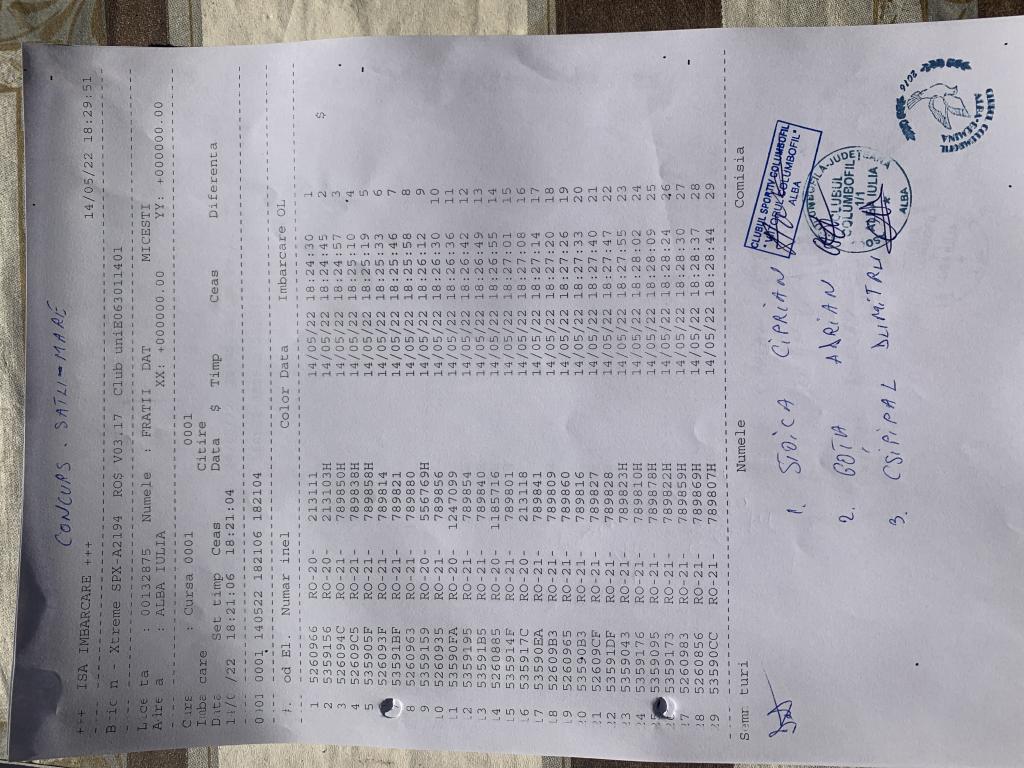 CONCURS. SATU-MARE
+++ ISA IMBARCARE +++ 14/05/22 18:29:51
Xtreme SPX-A2194 ROS V03.17 Club uniE063011401
: 00132875 Numele : FRATII DAT MICESTI
: ALBA IULIA XX: +000000.00 YY: +000000.00
: Cursa 0001 0001
Citire
Set timp Ceas Data $ Timp Ceas Diferenta
/22 18:21:06 18:21:04 $
0001 0001 140522 182106 182104
od El. Numar inel Color Data Imbarcare OL
1 5260966 RO-20- 213111 14/05/22 18:24:30 1
2 5359156 RO-20- 213103H 14/05/22 18:24:45 2
3 526094C RO-21- 789850H 14/05/22 18:24:57 3
4 52609C5 RO-21- 789838H 14/05/22 18:25:10 4
5 535905F RO-21- 789858H 14/05/22 18:25:19 5
526093F RO-21- 789814 14/05/22 18:25:33 6
53591BF RO-21- 789821 14/05/22 18:25:46 7
8 5260963 RO-21- 789880 14/05/22 18:25:58 8
9 5359159 RO-20- 556769H 14/05/22 18:26:12 9
10 5260935 RO-21- 789856 14/05/22 18:26:30 10
11 53590FA RO-20- 1247099 14/05/22 18:26:36 11
12 5359195 RO-21- 789854 14/05/22 18:26:42 12
13 53591B5 RO-21- 789840 14/05/22 18:26:49 13
14 5260885 RO-20- 1185716 14/05/22 18:26:55 14
15 535914F RO-21- 789801 14/05/22 18:27:01 15
16 535917C RO-20- 213118 14/05/22 18:27:08 16
17 53590EA RO-21- 789841 14/05/22 18:27:14 17
18 52609B3 RO-21- 789809 14/05/22 18:27:20 18
19 5260965 RO-21- 789860 14/05/22 18:27:26 19
20 53590B3 RO-21- 789816 14/05/22 18:27:33 20
21 52609CF RO-21- 789827 14/05/22 18:27:40 21
22 53591DF RO-21- 789828 14/05/22 18:27:47 22
23 5359043 RO-21- 789823H 14/05/22 18:27:55 23
24 5359176 RO-21- 789810H 14/05/22 18:28:02 24
25 5359095 RO-21- 789878H 14/05/22 18:28:09 25
5359173 RO-21- 789822H 14/05/22 18:28:24 26
27 5260983 RO-21- 789859H 14/05/22 18:28:30 27
28 5260856 RO-21- 789869H 14/05/22 18:28:37 28
29 53590CC RO-21- 789807H 14/05/22 18:28:44 29
Numele Comisia
1. STOICA CIPRIAN
2. GOTIA ADRIAN
3. CSIPIPAL DUMITRU
CLUBUL SPORTIV COLUMBOFIL
ALBA
CLUBUL
COLUMBOFIL
1/1
ALBA IULIA
ALBA
2016